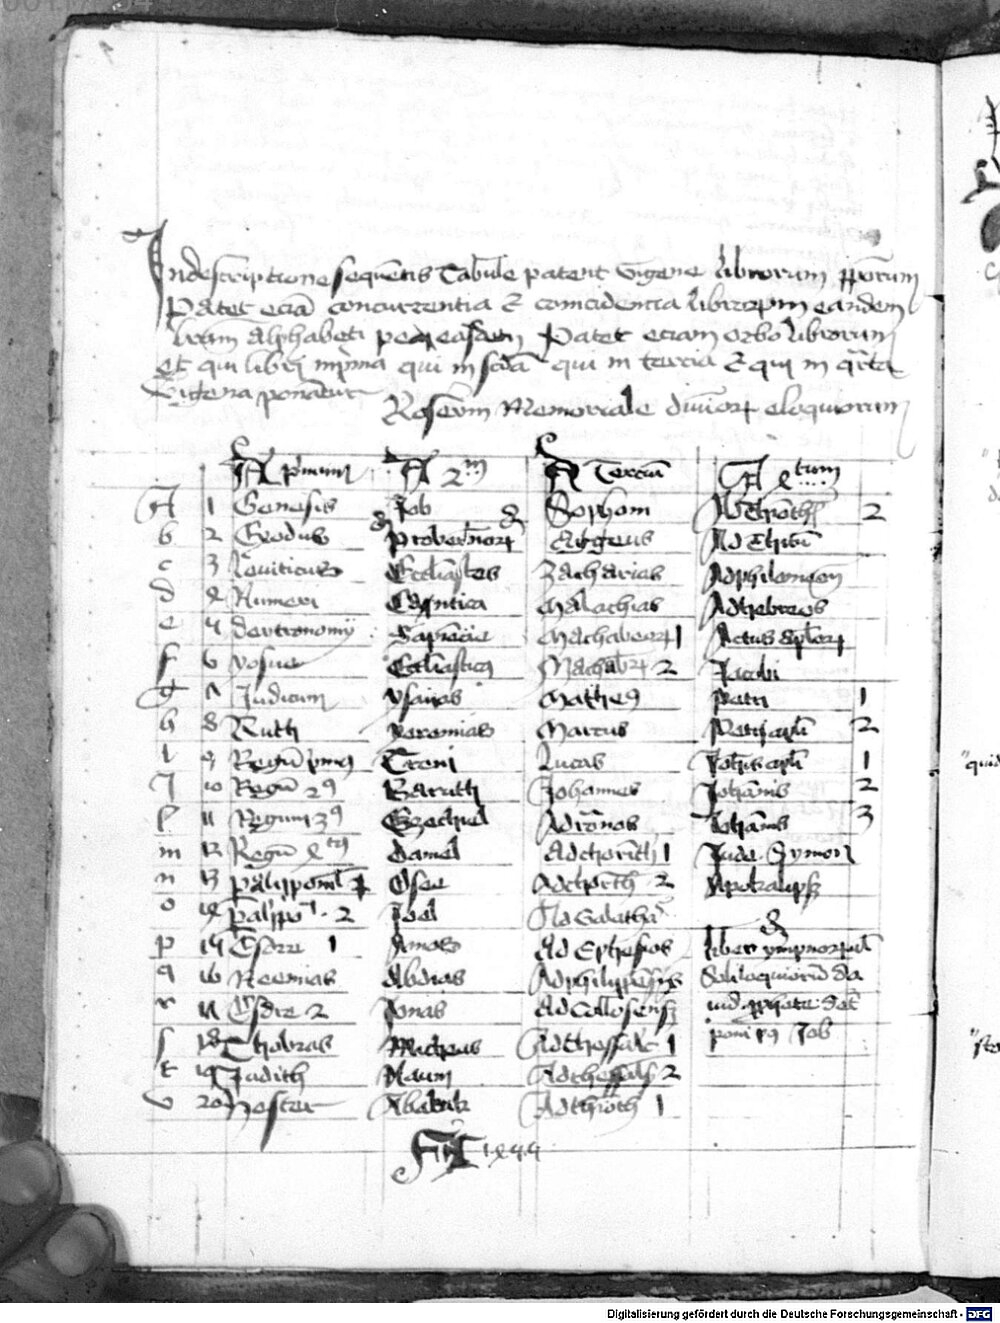 In descriptione sequentis Tabule patent Gigene librorum
Patet eciam concurrentia & coincidencia librorum eandem
alphabeti Patet eciam ordo librorum
Et qui libri in prima qui in scda qui in tercia & qui in qrta
ponantur
Memoriale eloquiorum
A primum A 2m A Tercium A 4tum
A 1 Genesis Job Sophom 2
b 2 Exodus Aggeus Ad Titum
c 3 Leviticus Ecclastes Zacharias Ad philemonem
d 4 Numeri Cantica Malachias Ad hebreos
e 5 deutronomij Sapiencie Machabeorum 1 Actus aplorum
f 6 yosue Ecclasticus Machab 2 Jacobi
g 7 Judicum ysaias Matheus petri 1
h 8 Ruth yeremias Marcus Petri 2
i 9 Regum primus Treni Lucas Johis 1
J 10 Regum 2us Baruth Johannes Johanis 2
l 11 Regum 3us Ezechiel Ad romanos Johanis 3
m 12 Regum 4tus Daniel Ad chorinth 1 Jude Symon
n 13 paralipomenon 1 Osee Ad chorinth 2 Apokalipsis
o 14 Paralipo 2 Joel Ad Galathas
p 15 Esdre 1 Amos Ad Ephesios liber ympnorum
q 16 Neemias Abdias Ad philippenses Soliloquiorum da
r 17 Esdre 2 Jonas Ad Collosenses uid prophete debet
s 18 Thobias Micheas Ad thessalc 1 poni post Job
t 19 Judith Naum Ad thessalc 2
v 20 Hester Abakuk Ad thimoth 1
1499
Digitalisierung gefördert durch die Deutsche Forschungsgemeinschaft - DFG